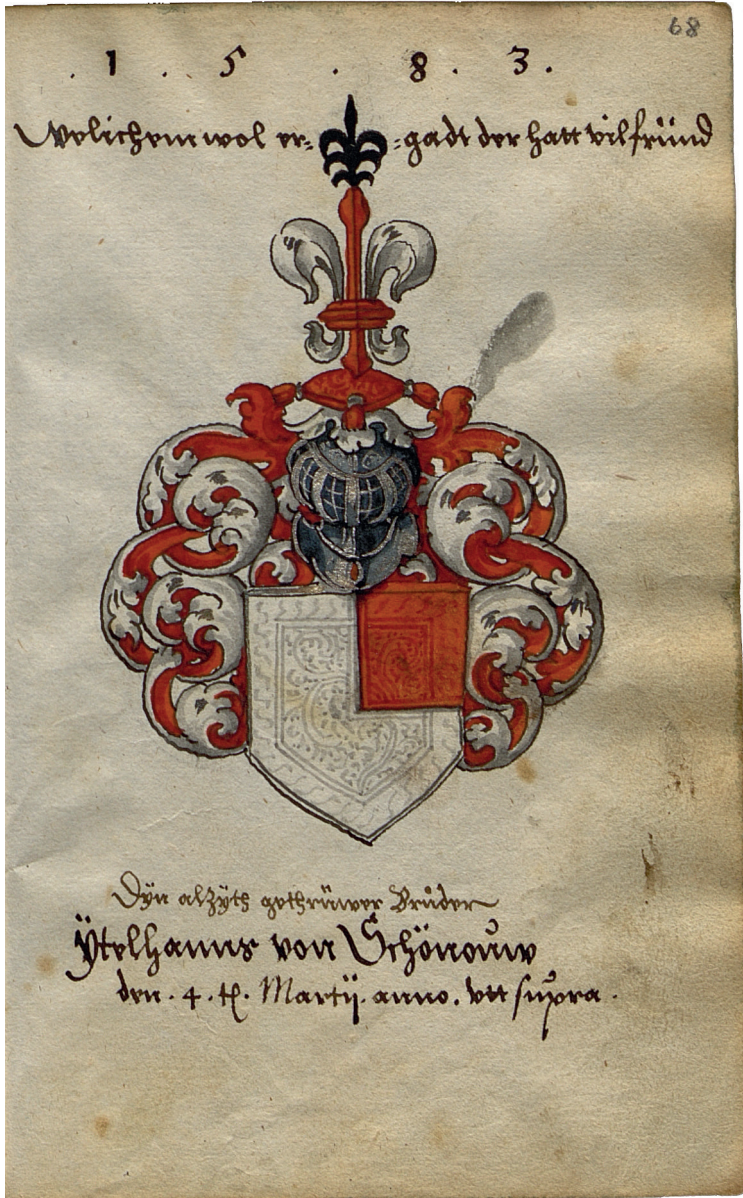 68
. 1 . 5 . 8 . 3 .
Welichem wol er= =gadt der hatt vil fründ
Dyn alzÿth gethrüwer Brůder
Ÿtelhanns von Schönouw
den . 4 . t. Martij. anno. vtt supra .